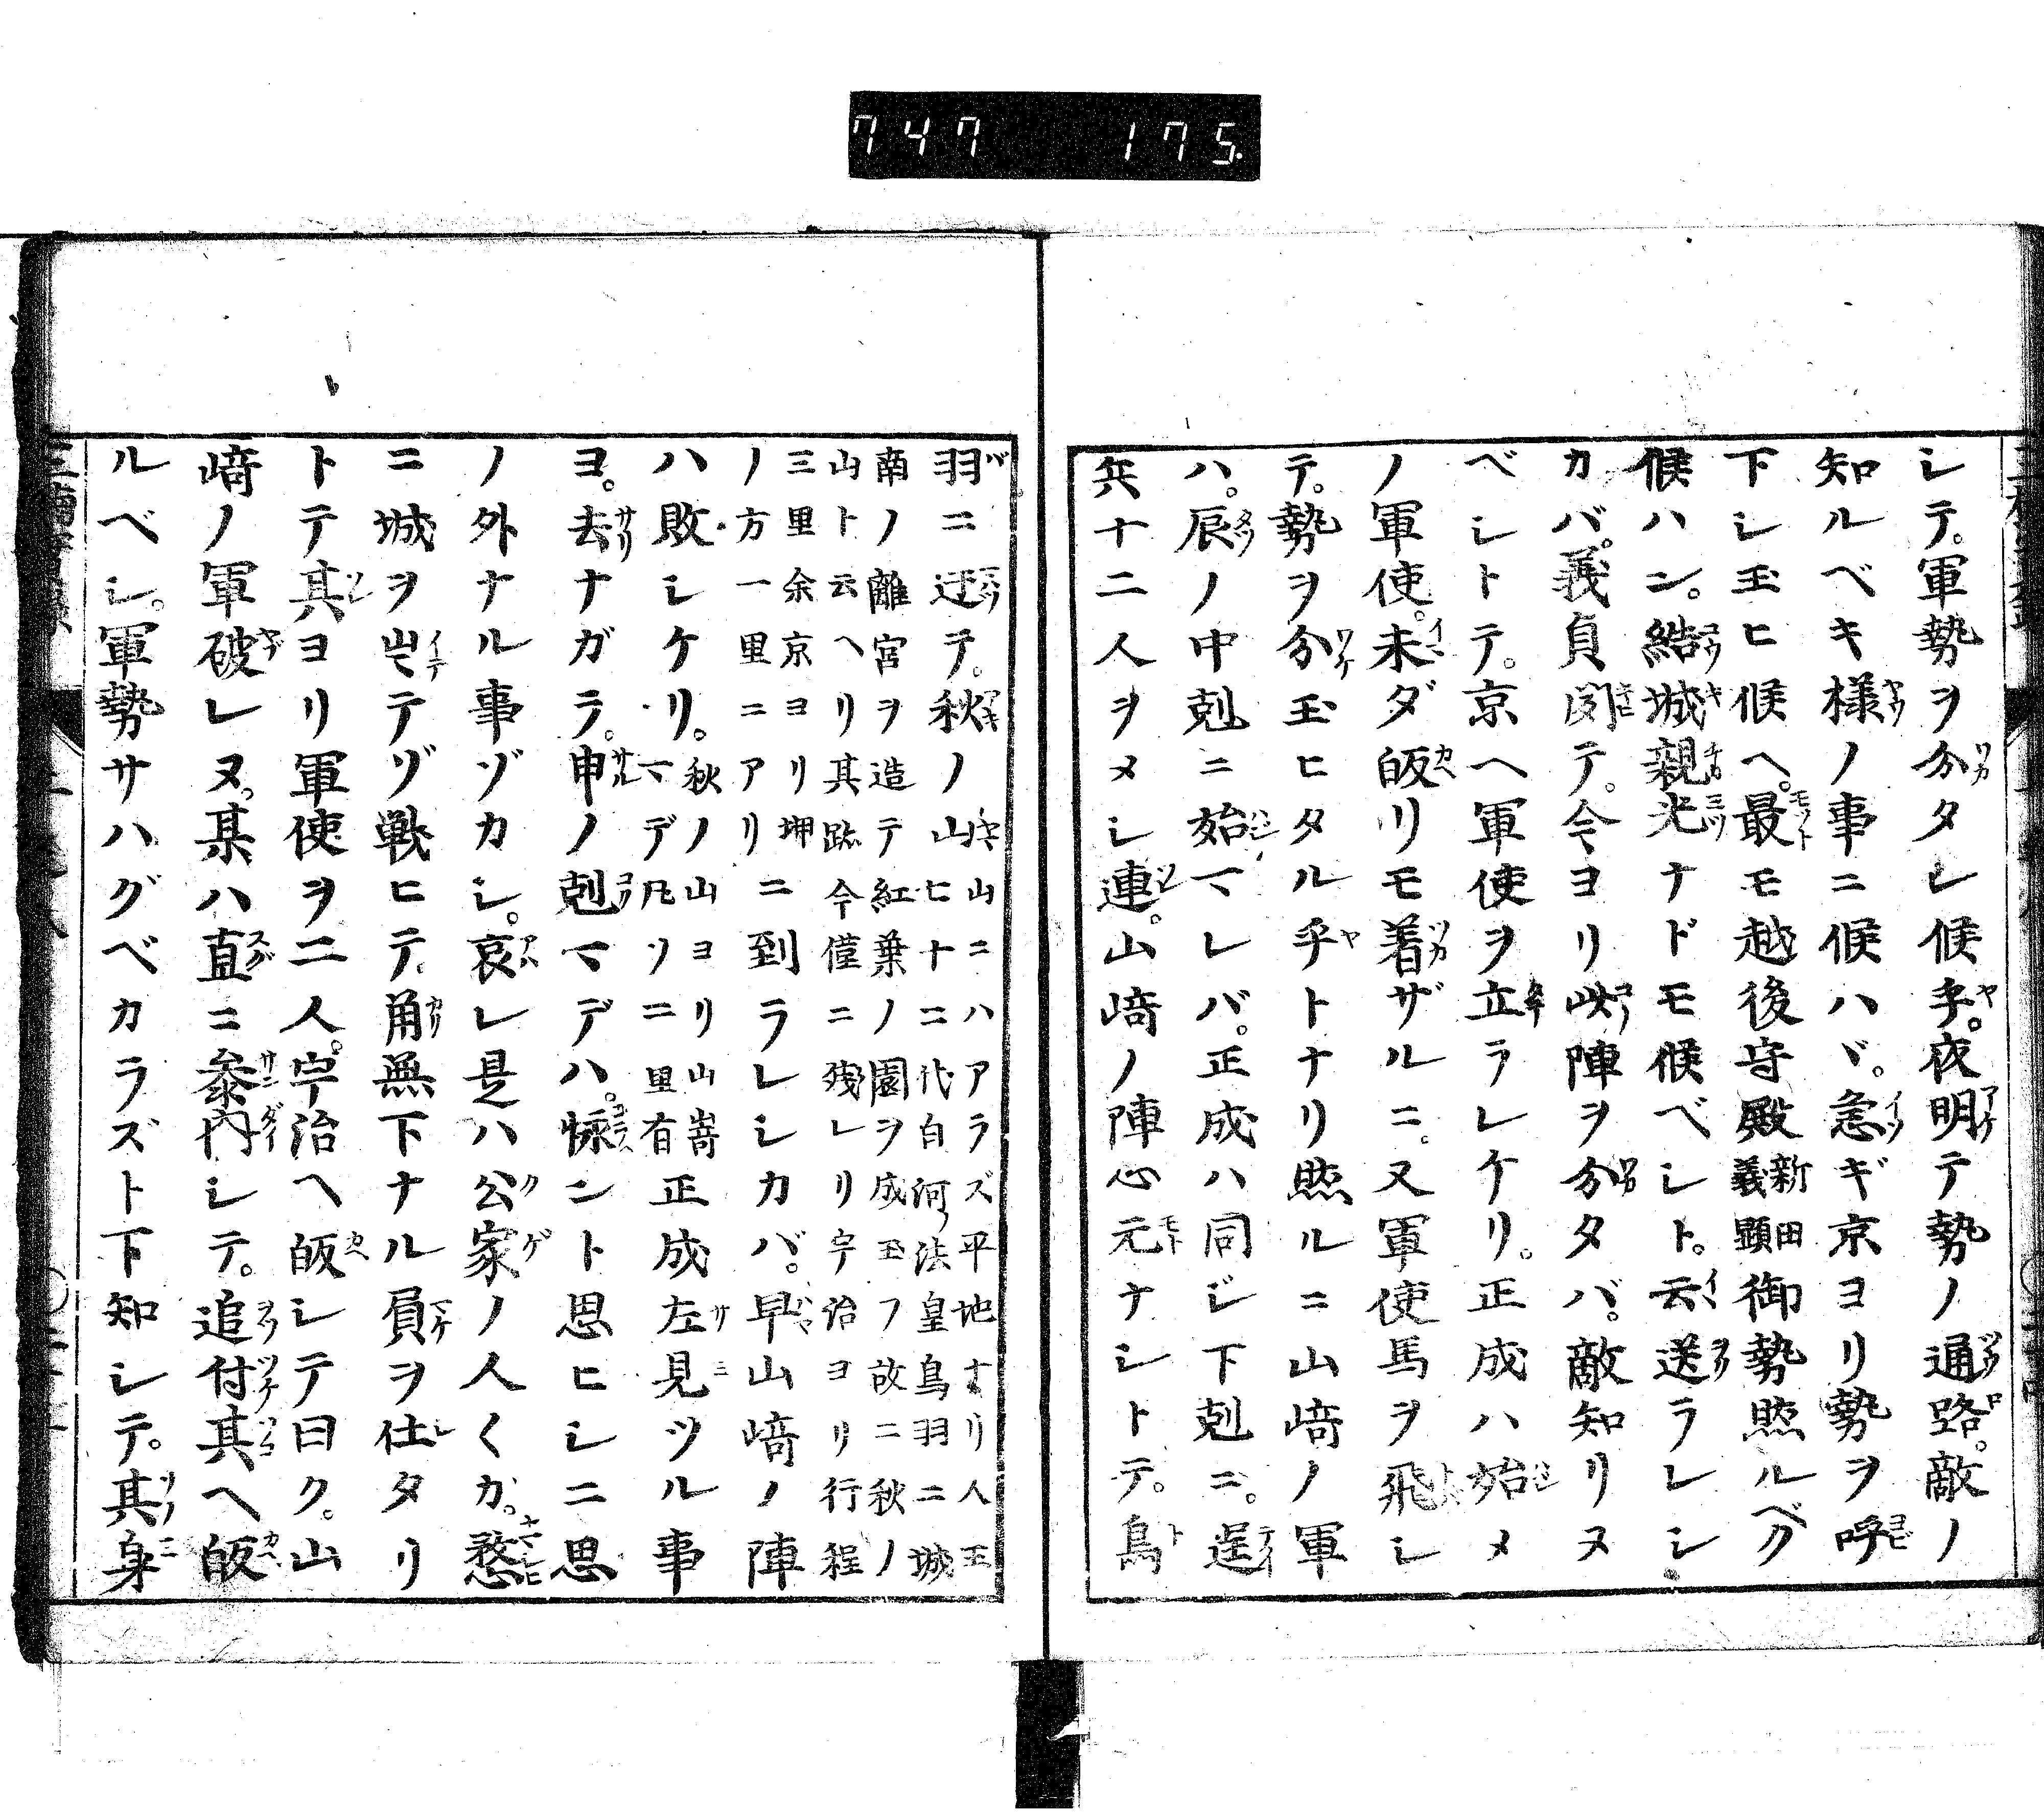 747 175.
シテ。軍勢ヲ分タレ候乎。夜明テ勢ノ通路。敵ノ
知ルベキ様ノ事ニ候ハヾ。急ギ京ヨリ勢ヲ呼
下シ玉ヒ候ヘ。最モ越後守殿新田義顕御勢然ルベク
候ハン。結城親光ナドモ候ベシト。云送ラレシ
カバ。義貞聞テ。今ヨリ此陣ヲ分タバ。敵知リヌ
ベシトテ。京ヘ軍使ヲ立ラレケリ。正成ハ始メ
ノ軍使。未ダ皈リモ着ザルニ。又軍使馬ヲ飛シ
テ。勢ヲ分玉ヒタル乎トナリ然ルニ山崎ノ軍
ハ。辰ノ中剋ニ始マレバ。正成ハ同ジ下剋ニ。逞
兵十二人ヲメシ連。山崎ノ陣心元ナシトテ。鳥
羽ニ迂テ。秋ノ山
山ニハアラズ平地ナリ人王
七十二代白河ノ法皇鳥羽ニ城
南ノ離宮ヲ造テ紅葉ノ園ヲ成玉フ故ニ秋ノ
山ト云ヘリ其跡今僅ニ残レリ宇治ヨリ行程
三里余京ヨリ坤
ノ方一里ニアリ
ニ到ラレシカバ。早山崎ノ陣
ハ敗シケリ。
秋ノ山ヨリ山嵜
マデ凡ソ二里有
正成左見ツル事
ヨ。去ナガラ。申ノ剋マデハ。怺ント思ヒシニ思
ノ外ナル事ゾカシ。哀レ是ハ公家ノ人〱カ。憖
ニ城ヲ出テゾ戦ヒテ。角無下ナル負ヲ仕タリ
トテ其ヨリ軍使ヲ二人。宇治ヘ皈シテ曰ク。山
崎ノ軍破レヌ。某ハ直ニ参内シテ。追付其ヘ皈
ルベシ。軍勢サハグベカラズト下知シテ。其身